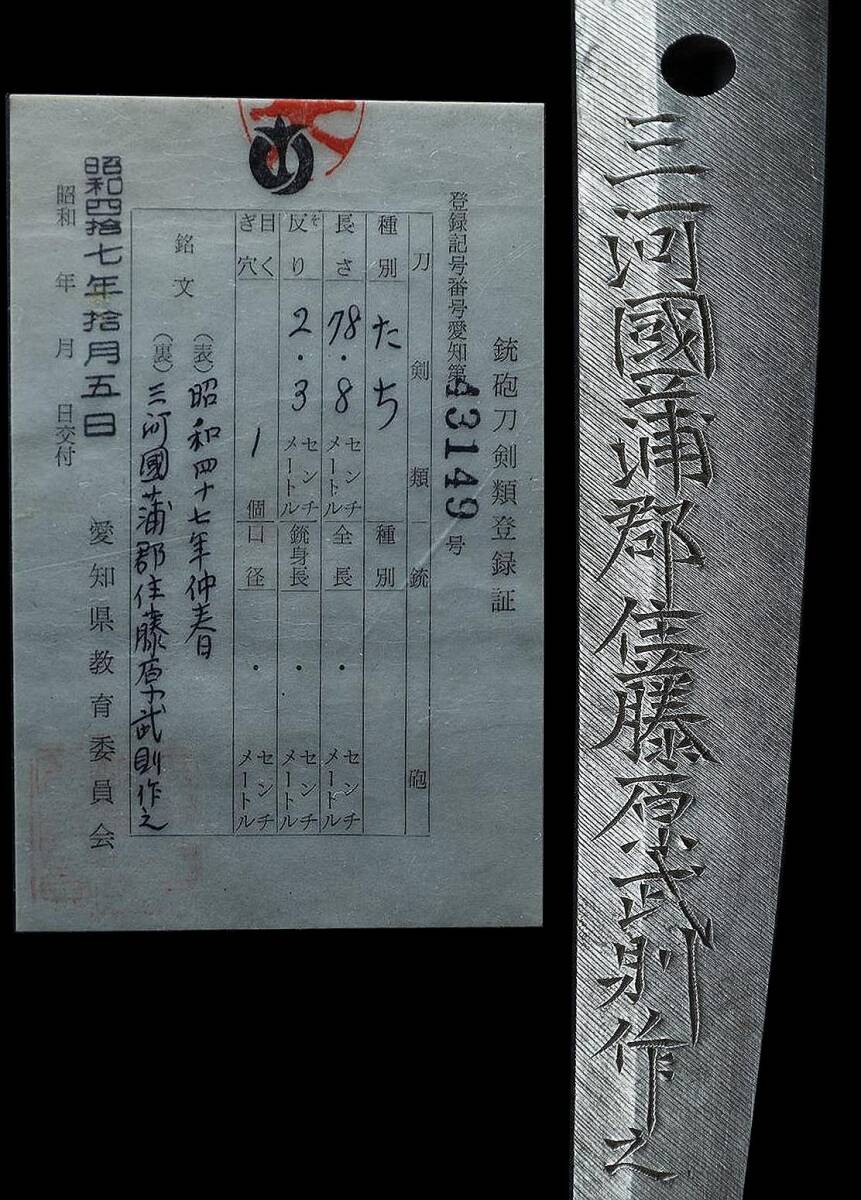 銃砲刀剣類登録証
登録記号番号愛知第43149号
刀剣類 銃砲
種別 たち 種別
長さ 78.8 センチメートル 全長 ・ センチメートル
反り 2.3 センチメートル 銃身長 ・ センチメートル
そ
目くぎ穴 1 個 口径 ・ センチメートル
銘文
(表)昭和四十七年仲春日
(裏)三河國蒲郡住藤原武則作之
昭和四拾七年拾月五日
昭和 年 月 日交付
愛知県教育委員会
三河國蒲郡住藤原武則作之